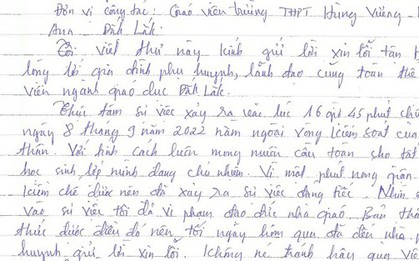 Đơn vị công tác: Giáo viên trường THPT Hùng Vương
Ana - Đăk Lăk.
Tôi viết thư này kính gửi lời xin lỗi tận
lòng tới gia đình phụ huynh, lãnh đạo cùng toàn thể
viên ngành giáo dục Đăk Lăk.
Thực tâm sự việc xảy ra vào lúc 16 giờ 45 phút
ngày 8 tháng 9 năm 2022 nằm ngoài vòng kiểm soát của
thân. Với tính cách luôn mong muốn cầu toàn cho tất
học sinh, lớp mình đang chủ nhiệm. Vì một phút nóng giận
kiềm chế được nên đã xảy ra sự việc đáng tiếc. Nhìn
vào sự việc tôi đã vi phạm đạo đức nhà giáo. Bản thâ
thức được điều đó nên tối ngày hôm qua đã đến nhà
huynh gửi lời xin lỗi. Không né tránh hậu quả